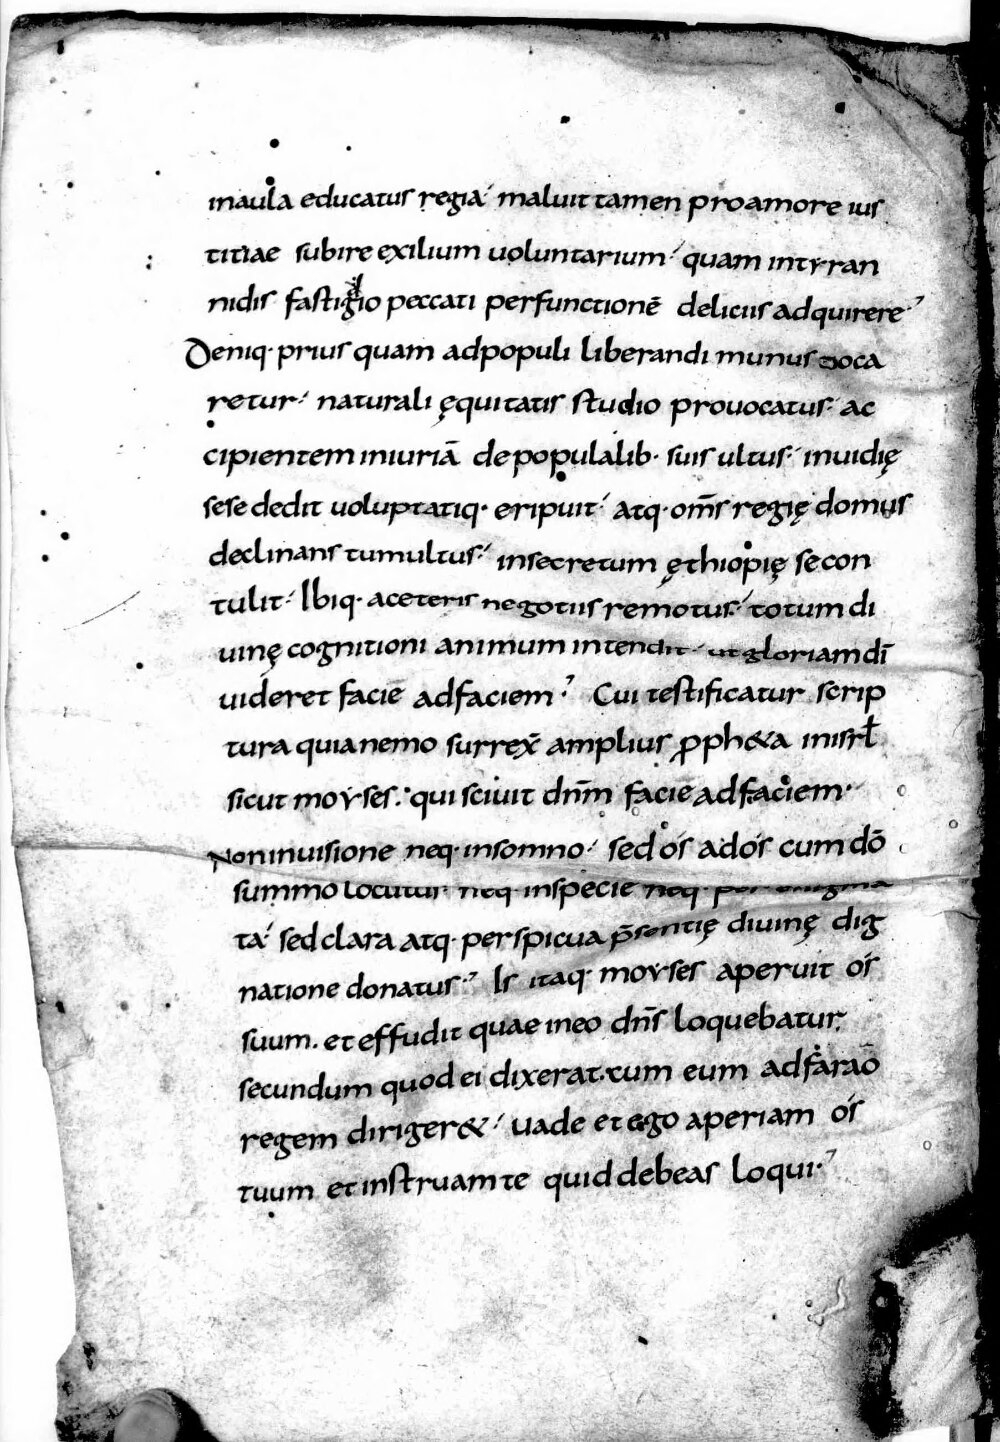 inaula educatus regia maluit tamen proamore ius
titiae subire exilium uoluntarium quam intyran
nidis fastigio peccati perfunctionē deliciis adquirere
Deniq· prius quam adpopuli liberandi munus uoca
retur naturali ęquitatis studio prouocatus ac
cipientem iniuriā depopularib· suis ultus inuidię
sese dedit uoluptatiq· eripuit atq· om̄s regię domus
declinans tumultus insecretum ęthiopię secon
tulit Ibiq· aceteris negotiis remotus totum di
uinę cognitioni animum intendit ut gloriam dī
uideret faciē adfaciem Cui testificatur scrip
tura quianemo surrex̄ amplius ꝓph&a inisrƚ
sicut moyses. qui sciuit dn̄m faciē adfaciem
Noninuisione neq· insomno sed os ados cum dō
summo locutus neq· inspecie neq· per enigma
ta sed clara atq· perspicua p̄sentię diuinę dig
natione donatus Is itaq· moyses aperuit os
suum. et effudit quae ineo dn̄s loquebatur
secundum quod ei dixerat. cum eum adfaraō
regem diriger& uade et ego aperiam os
tuum et instruam te quid debeas loqui